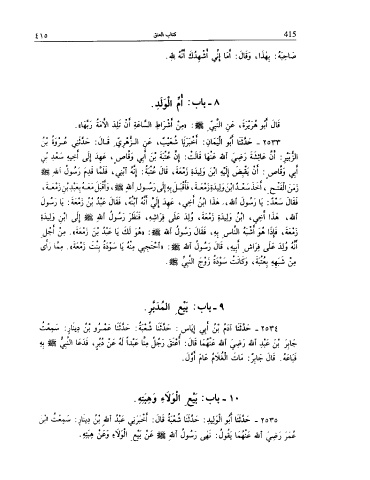 415 كتاب العتق ٤١٥
صَاحِبَهُ: بِهَذَا، وَقَالَ: أَمَا إِنِّي أُشْهِدُكَ أَنَّهُ لِلَّهِ.
٨ - باب: أُمِّ الْوَلَدِ.
قَالَ أَبُو هُرَيْرَةَ، عَنِ النَّبِيِّ ﷺ: «مِنْ أَشْرَاطِ السَّاعَةِ أَنْ تَلِدَ الأَمَةُ رَبَّهَا».
٢٥٣٣ - حَدَّثَنَا أَبُو الْيَمَانِ: أَخْبَرَنَا شُعَيْبٌ، عَنِ الزُّهْرِيِّ قَالَ: حَدَّثَنِي عُرْوَةُ بْنُ
الزُّبَيْرِ: أَنَّ عَائِشَةَ رَضِيَ اللهُ عَنْهَا قَالَتْ: إِنَّ عُتْبَةَ بْنَ أَبِي وَقَّاصٍ، عَهِدَ إِلَى أَخِيهِ سَعْدِ بْنِ
أَبِي وَقَّاصٍ: أَنْ يَقْبِضَ إِلَيْهِ ابْنَ وَلِيدَةِ زَمْعَةَ، قَالَ عُتْبَةُ: إِنَّهُ ابْنِي، فَلَمَّا قَدِمَ رَسُولُ اللهِ ﷺ
زَمَنَ الْفَتْحِ، أَخَذَ سَعْدٌ ابْنَ وَلِيدَةِ زَمْعَةَ، فَأَقْبَلَ بِهِ إِلَى رَسُولِ اللهِ ﷺ، وَأَقْبَلَ مَعَهُ بِعَبْدِ بْنِ زَمْعَةَ،
فَقَالَ سَعْدٌ: يَا رَسُولَ اللهِ، هَذَا ابْنُ أَخِي، عَهِدَ إِلَيَّ أَنَّهُ ابْنُهُ، فَقَالَ عَبْدُ بْنُ زَمْعَةَ: يَا رَسُولَ
اللهِ، هَذَا أَخِي، ابْنُ وَلِيدَةِ زَمْعَةَ، وُلِدَ عَلَى فِرَاشِهِ، فَنَظَرَ رَسُولُ اللهِ ﷺ إِلَى ابْنِ وَلِيدَةِ
زَمْعَةَ، فَإِذَا هُوَ أَشْبَهُ النَّاسِ بِهِ، فَقَالَ رَسُولُ اللهِ ﷺ: «هُوَ لَكَ يَا عَبْدُ بْنَ زَمْعَةَ». مِنْ أَجْلِ
أَنَّهُ وُلِدَ عَلَى فِرَاشِ أَبِيهِ، قَالَ رَسُولُ اللهِ ﷺ: «احْتَجِبِي مِنْهُ يَا سَوْدَةُ بِنْتَ زَمْعَةَ». مِمَّا رَأَى
مِنْ شَبَهِهِ بِعُتْبَةَ، وَكَانَتْ سَوْدَةُ زَوْجَ النَّبِيِّ ﷺ.
٩ - باب: بَيْعِ الْمُدَبَّرِ.
٢٥٣٤ - حَدَّثَنَا آدَمُ بْنُ أَبِي إِيَاسٍ: حَدَّثَنَا شُعْبَةُ: حَدَّثَنَا عَمْرُو بْنُ دِينَارٍ: سَمِعْتُ
جَابِرَ بْنَ عَبْدِ اللهِ رَضِيَ اللهُ عَنْهُمَا قَالَ: أَعْتَقَ رَجُلٌ مِنَّا عَبْدًا لَهُ عَنْ دُبُرٍ، فَدَعَا النَّبِيُّ ﷺ بِهِ
فَبَاعَهُ. قَالَ جَابِرٌ: مَاتَ الْغُلَامُ عَامَ أَوَّلَ.
١٠ - باب: بَيْعِ الْوَلَاءِ وَهِبَتِهِ.
٢٥٣٥ - حَدَّثَنَا أَبُو الْوَلِيدِ: حَدَّثَنَا شُعْبَةُ قَالَ: أَخْبَرَنِي عَبْدُ اللهِ بْنُ دِينَارٍ: سَمِعْتُ ابْنَ
عُمَرَ رَضِيَ اللهُ عَنْهُمَا يَقُولُ: نَهَى رَسُولُ اللهِ ﷺ عَنْ بَيْعِ الْوَلَاءِ وَعَنْ هِبَتِهِ.